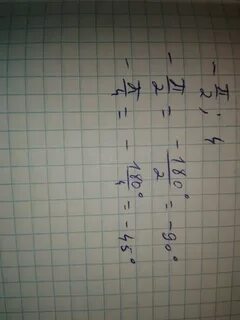 - π/2 ; 4
- π/2 = - 180°/2 = -90°
- π/4 = - 180°/4 = -45°